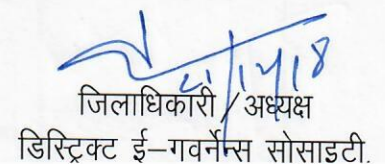 जिलाधिकारी / अध्यक्ष
डिस्ट्रिक्ट ई–गवर्नेन्स सोसाइटी